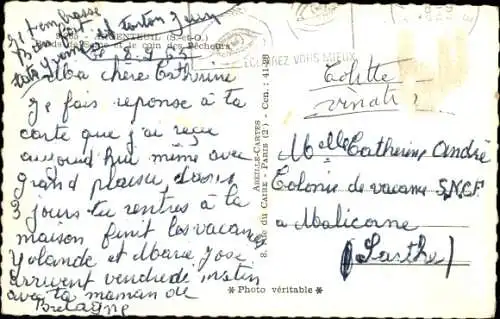 je t'embrasse
bien fort
tata Yvonne et tonton
ARGENTEUIL (S.-et-O.)
Bords de Seine et le coin des Pêcheurs
ECLAIREZ VOUS MIEUX
Ma chère Catherine
Je fais réponse à ta
carte que j'ai reçue
aujourd'hui même avec
grand plaisir, dans
3 jours tu rentres à la
maison finit les vacances
Yolande et Marie José
arrivent vendredi matin
avec ta maman de
Bretagne
ABEILLE-CARTES
8, RUE DU CAIRE - PARIS (2e) - Cen. : 41-28
Melle Catherine André
Colonie de vacances S.N.C.F
à Malicorne
(Sarthe)
* Photo véritable *